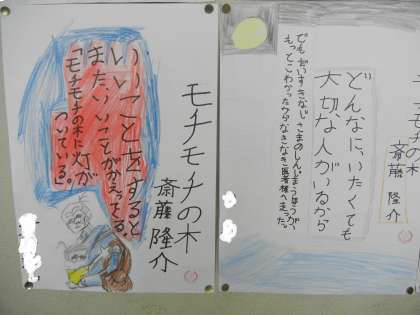 モチモチの木
斎藤隆介
いいことをすると
またいいことがかえってくる。
「モチモチの木に灯が
ついている。」
モチモチの木
斎藤隆介
どんなに、いたくても
大切な人がいるから
でもだいすきなじさまのしんじまうほうが、
もっとこわかったからなきなき医者様へ走った。